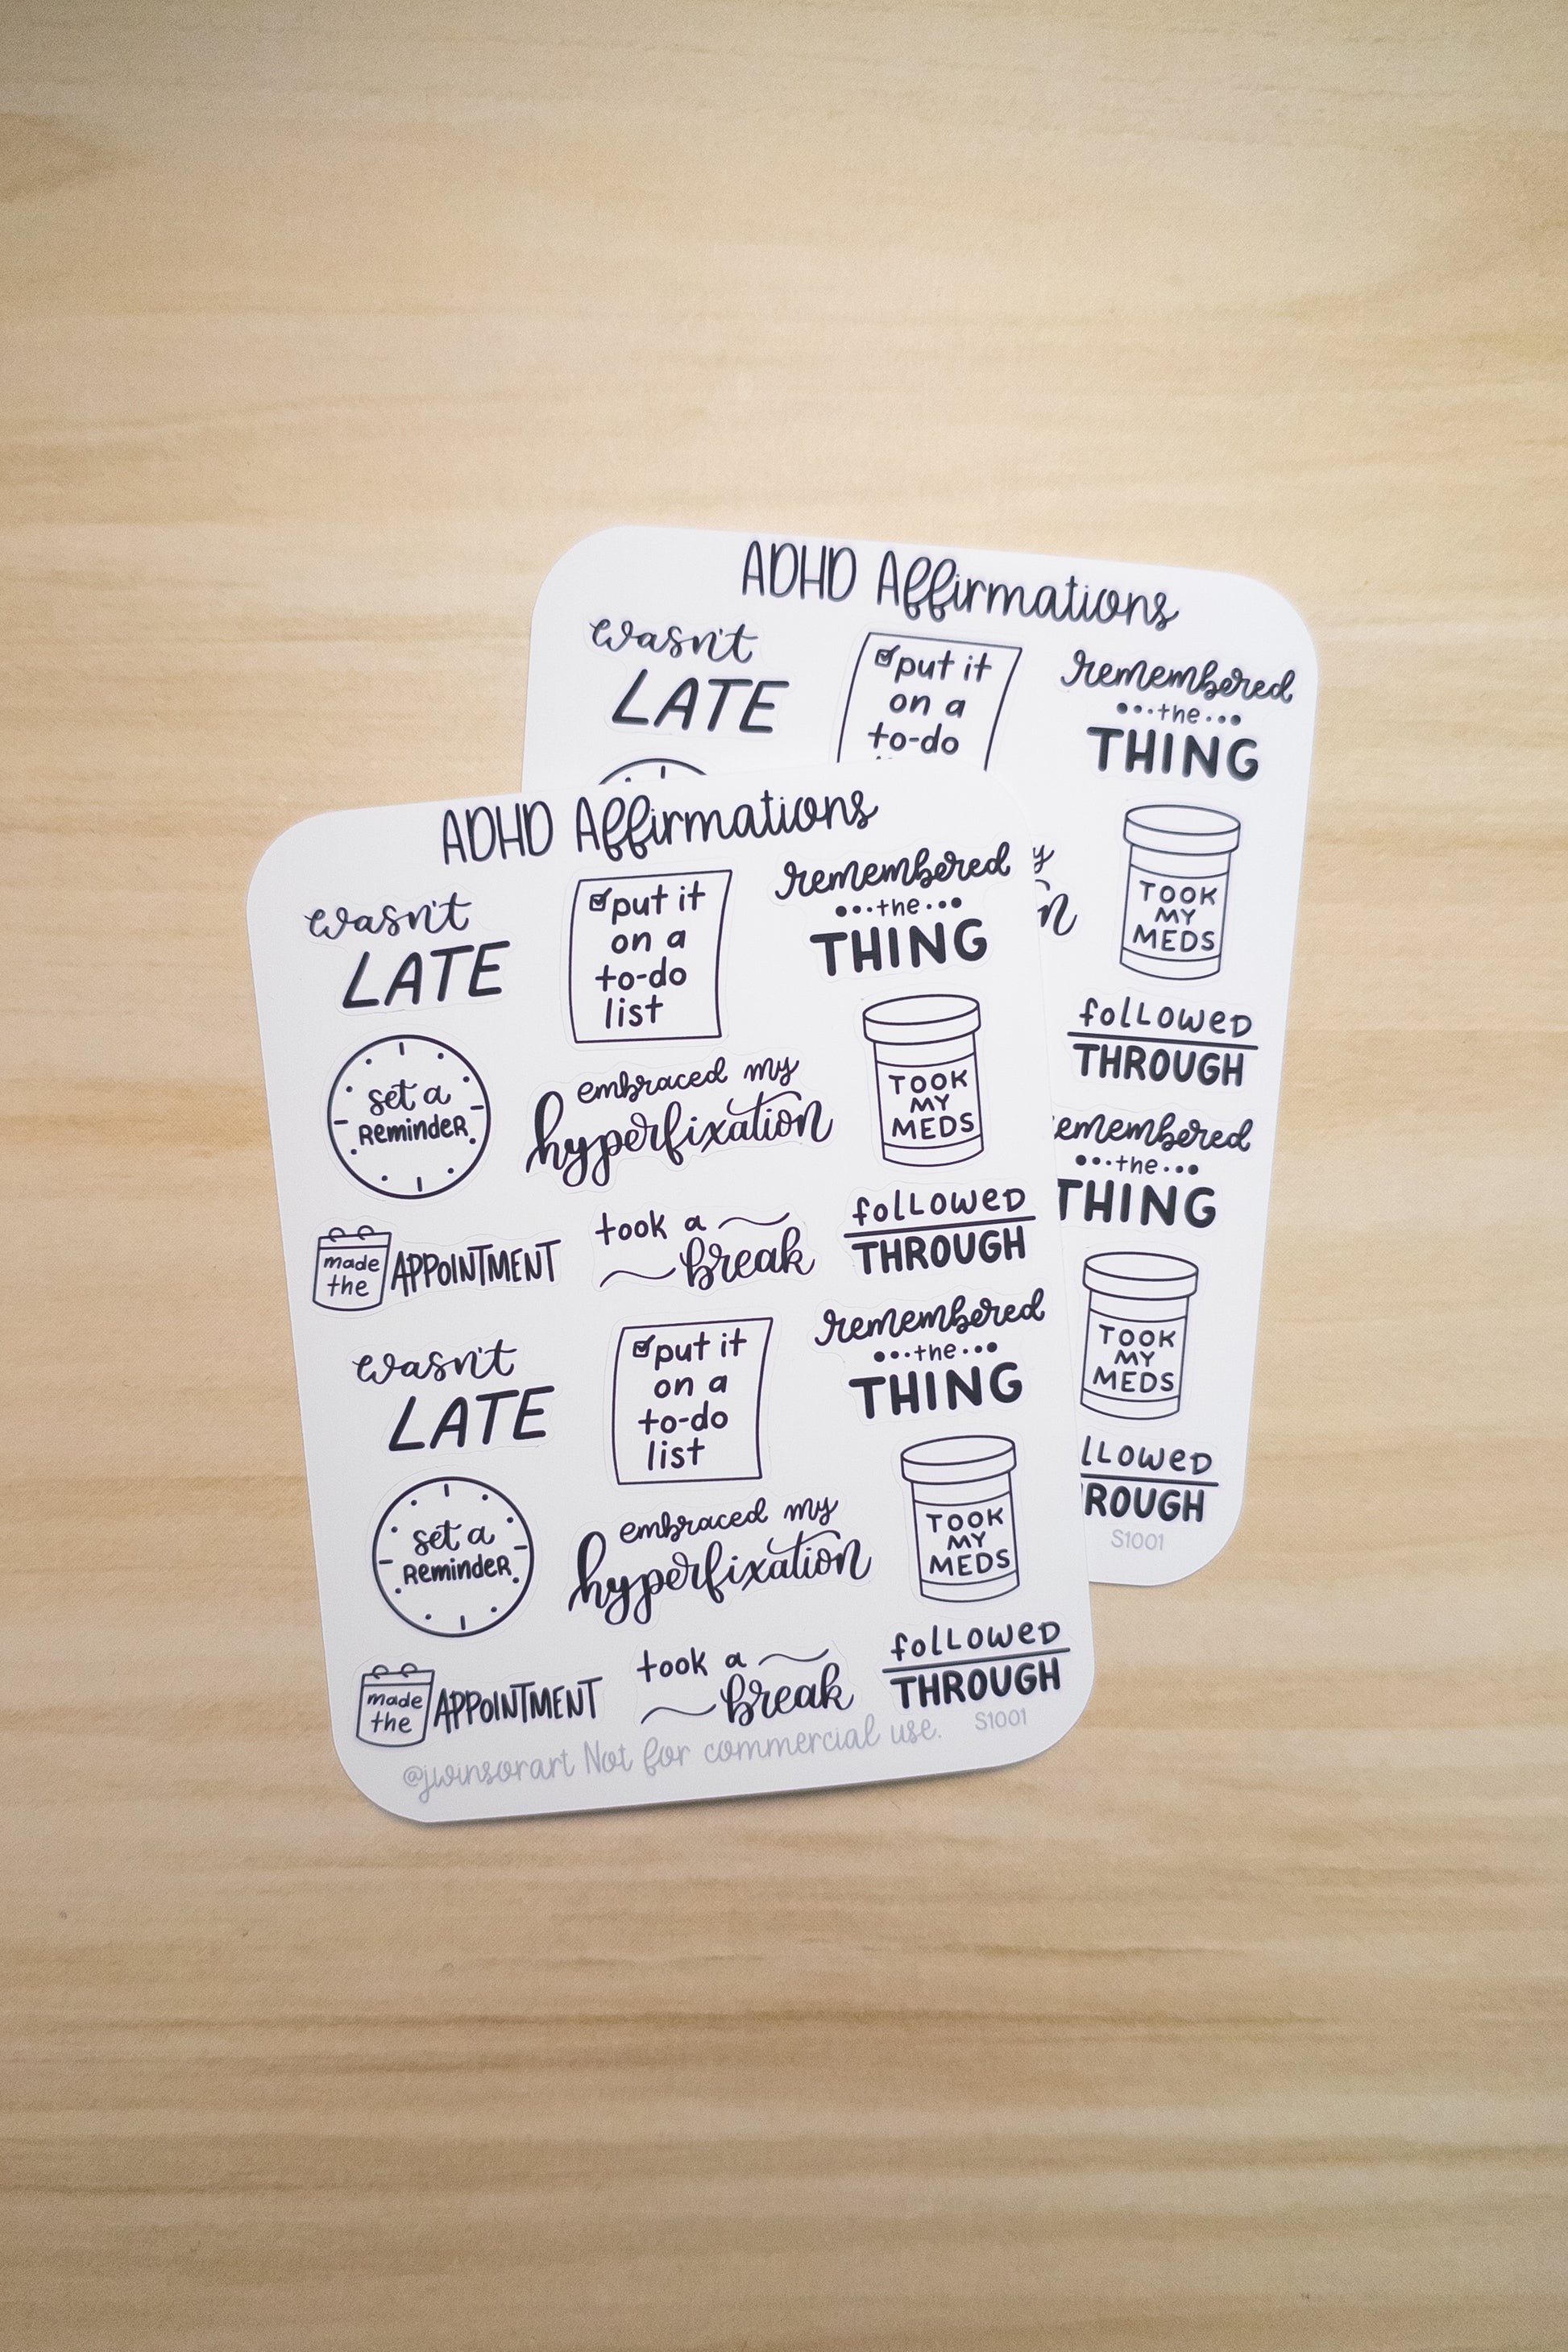 ADHD Affirmations
wasn't
LATE
put it
on a
to-do
remembered
the
THING
TOOK
MY
MEDS
followed
THROUGH
remembered
the
THING
TOOK
MY
MEDS
S1001
ADHD Affirmations
wasn't
LATE
put it
on a
to-do
list
remembered
the
THING
set a
Reminder
embraced my
hyperfixation
TOOK
MY
MEDS
made
the
APPOINTMENT
took a
break
followed
THROUGH
wasn't
LATE
put it
on a
to-do
list
remembered
the
THING
set a
Reminder
embraced my
hyperfixation
TOOK
MY
MEDS
made
the
APPOINTMENT
took a
break
followed
THROUGH
@jwinsorart Not for commercial use. S1001